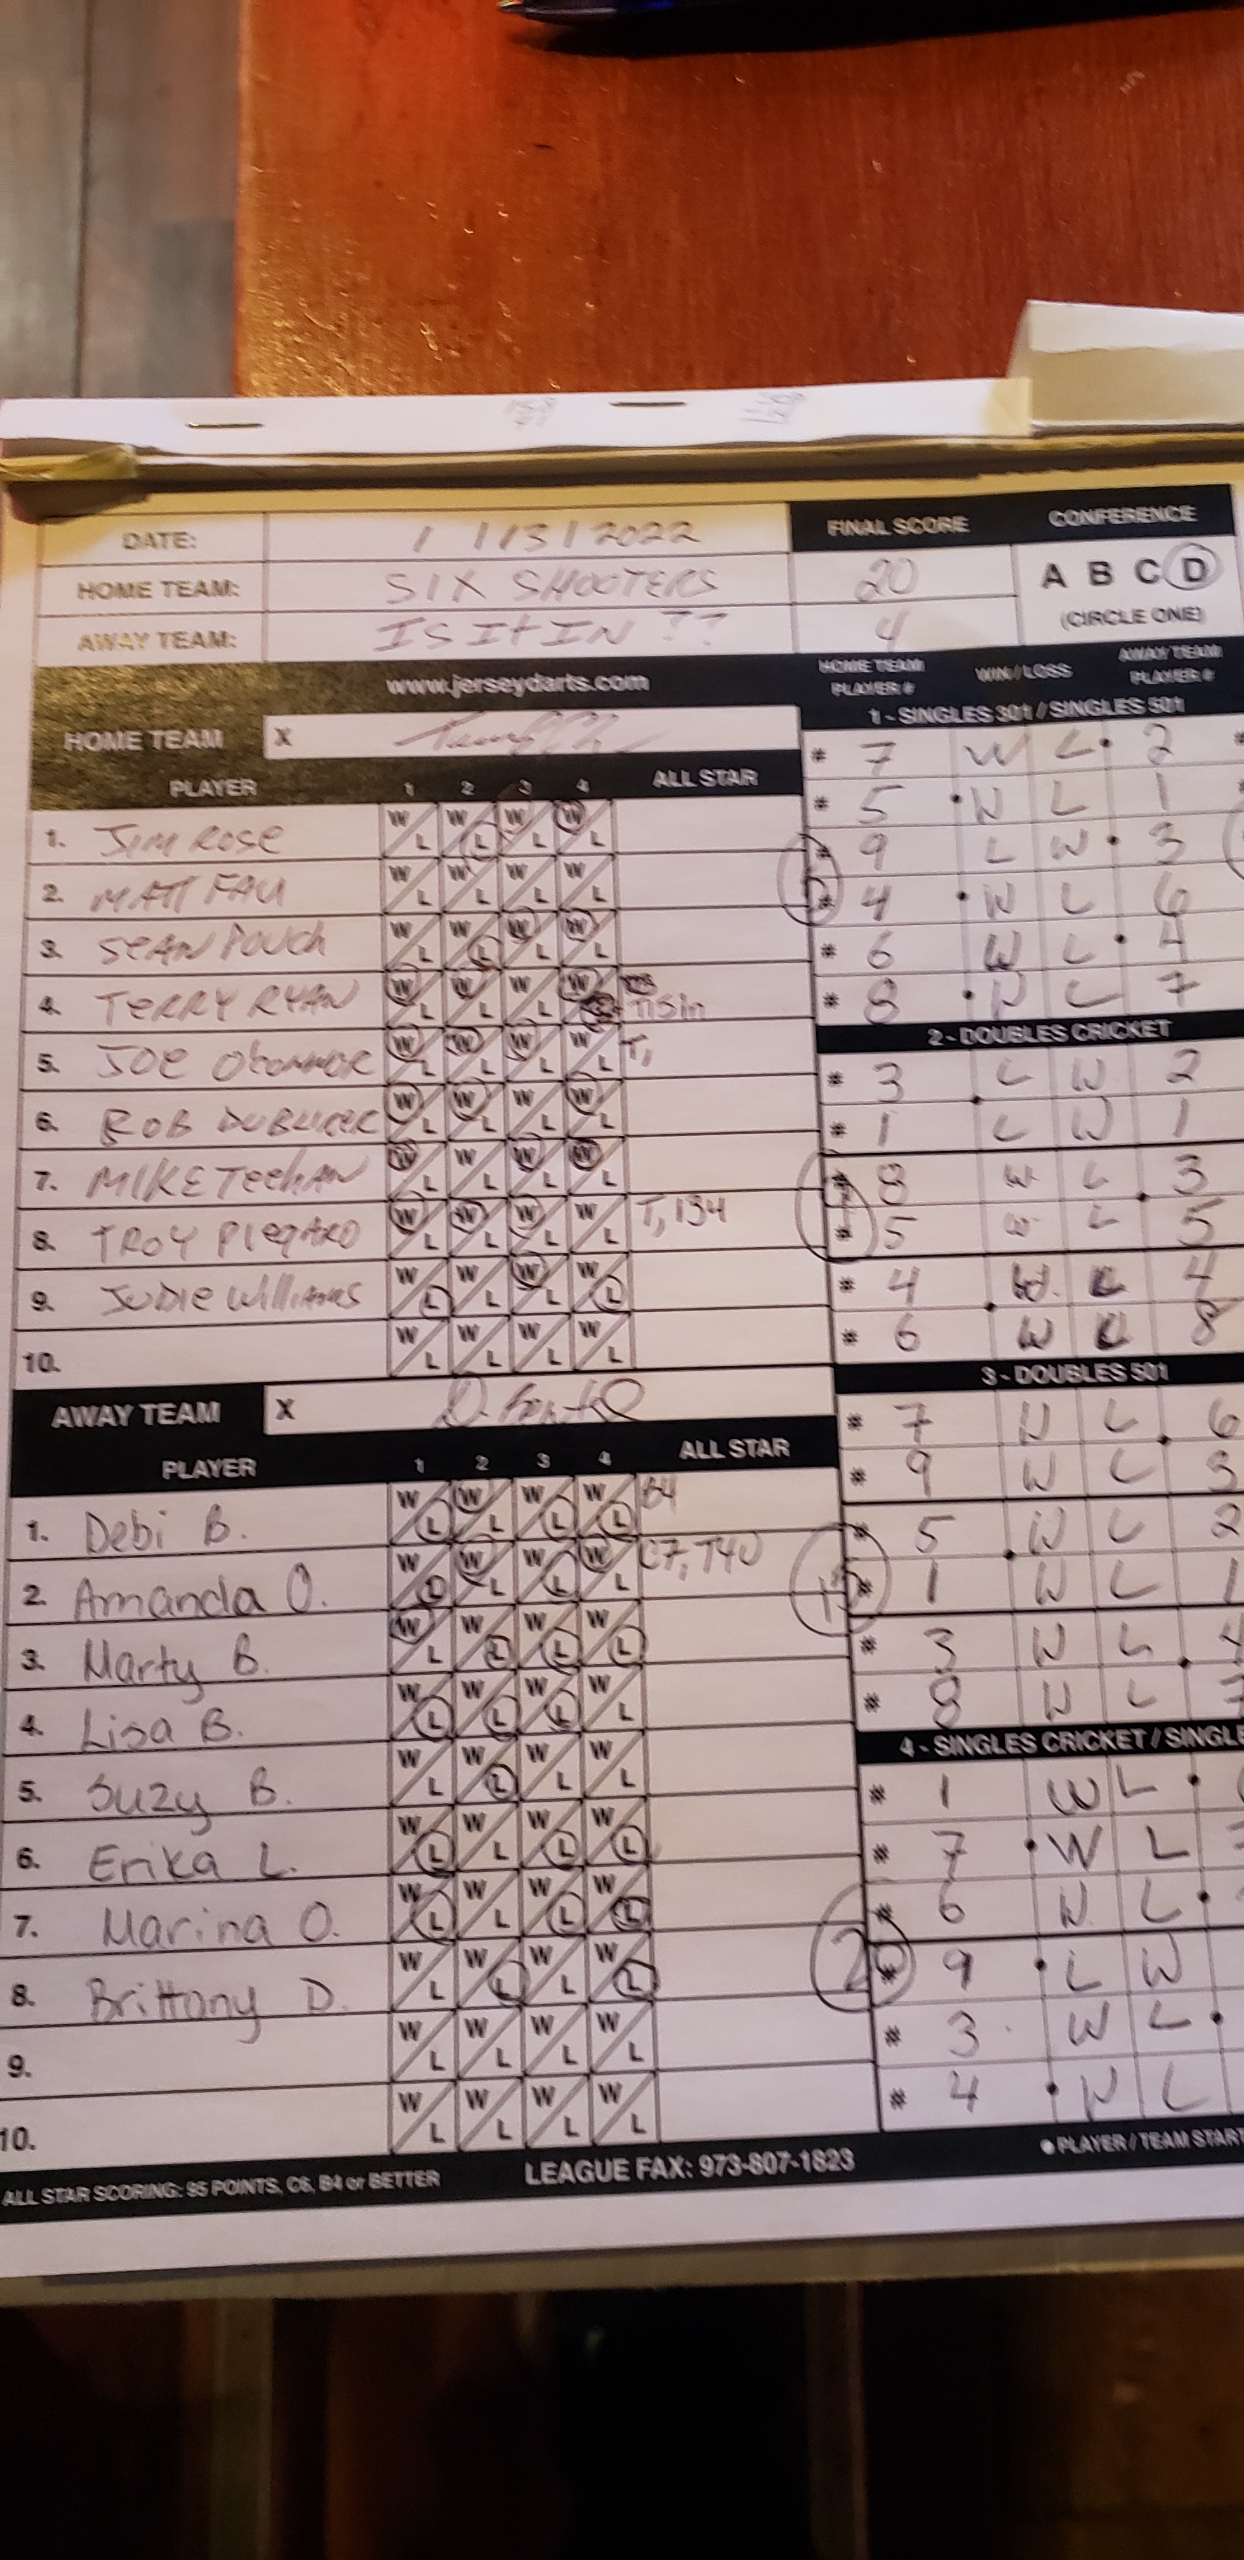 DATE: 1 / 13 / 2022
HOME TEAM: SIX SHOOTERS
AWAY TEAM: IS It IN ??
FINAL SCORE
20
4
CONFERENCE
A B C D
(CIRCLE ONE)
www.jerseydarts.com
HOME TEAM X
PLAYER 1 2 3 4 ALL STAR
1. JIM ROSE W L W L W L W L
2. MATT FAU W L W L W L W L
3. SEAN POUCH W L W L W L W L
4. TERRY RYAN W L W L W L W L
5. JOE OConnor W L W L W L W L T,
6. ROB W L W L W L W L
7. MIKE TeehAN W L W L W L W L
8. TROY W L W L W L W L T, 134
9. JUDIE Williams W L W L W L W L
10. W L W L W L W L
AWAY TEAM X
PLAYER 1 2 3 4 ALL STAR
1. Debi B. W L W L W L W L B4
2. Amanda O. W L W L W L W L C7, T40
3. Marty B. W L W L W L W L
4. Lisa B. W L W L W L W L
5. Suzy B. W L W L W L W L
6. Erika L. W L W L W L W L
7. Marina O. W L W L W L W L
8. Brittany D. W L W L W L W L
9. W L W L W L W L
10. W L W L W L W L
ALL STAR SCORING: 95 POINTS, C6, B4 or BETTER
LEAGUE FAX: 973-807-1823
HOME TEAM PLAYER # WIN / LOSS AWAY TEAM PLAYER #
1 - SINGLES 301 / SINGLES 501
# 7 W L 2
# 5 W L 1
# 9 L W 3
# 4 W L 6
# 6 W L 4
# 8 W L 7
2 - DOUBLES CRICKET
# 3 L W 2
# 1 L W 1
# 8 W L 3
# 5 W L 5
# 4 W L 4
# 6 W L 8
3 - DOUBLES 501
# 7 W L 6
# 9 W L 3
# 5 W L 2
# 1 W L 1
# 3 W L 4
# 8 W L 7
4 - SINGLES CRICKET / SINGLE
# 1 W L
# 7 W L
# 6 W L
# 9 L W
# 3 W L
# 4 W L
PLAYER / TEAM START